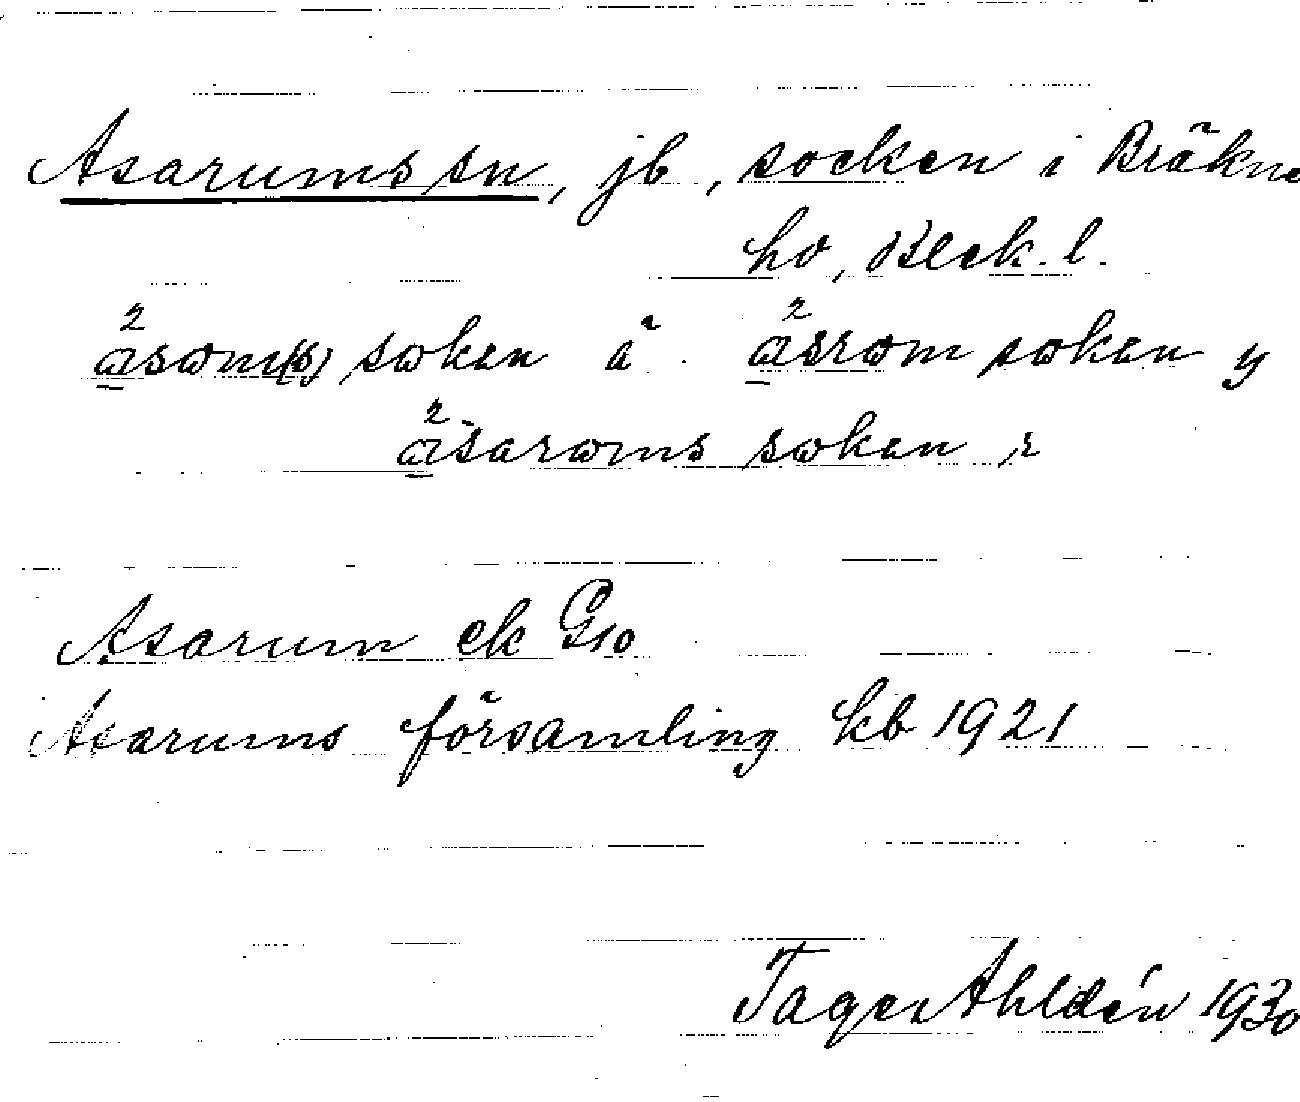 Asarums sn, jb, socken i Bräkne
hd, Bleck. l.
²asωm(s) sωkən ä. ²asrωm sωkən y
²asarωms sωkən r
Asarum ek G10
Asarums församling kb 1921
Tage Ahldén 1930